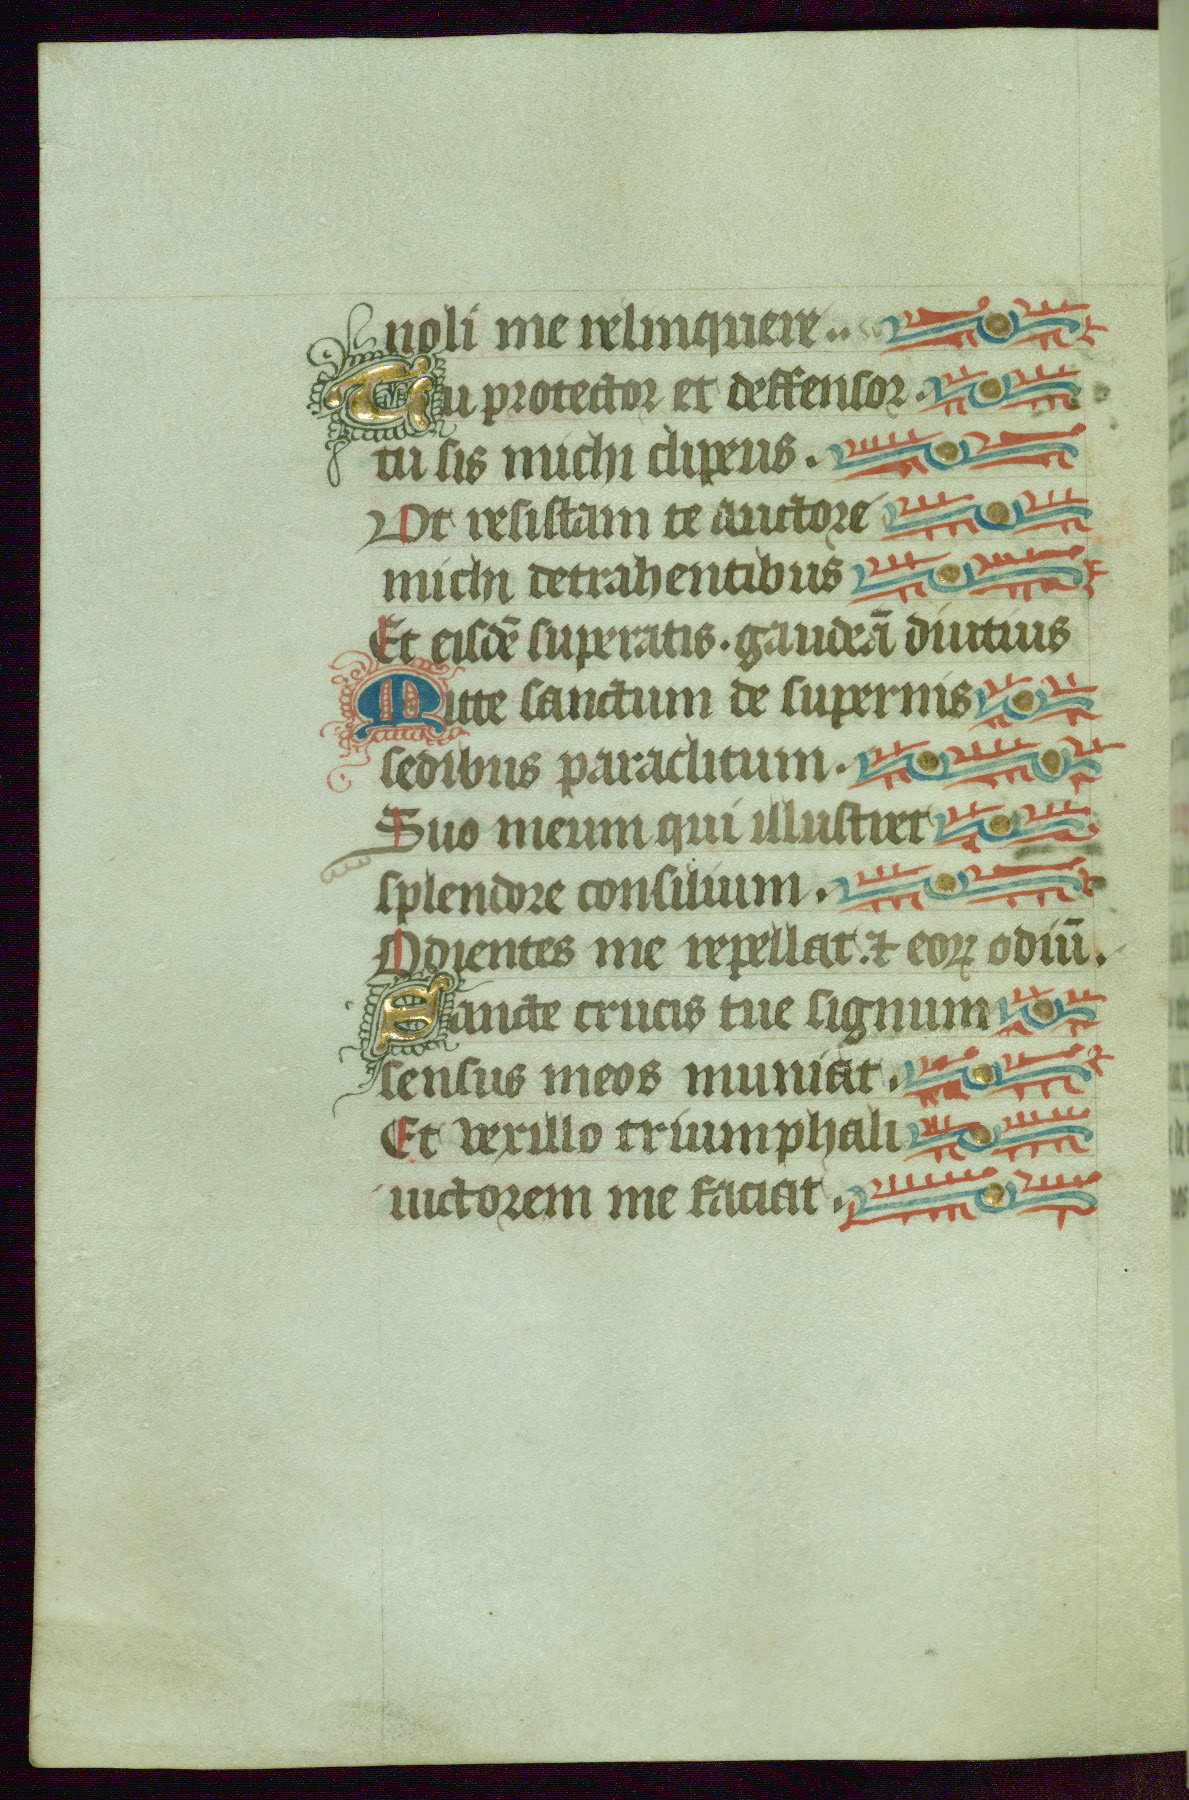 noli me relinquere..
Tu protector et deffensor.
tu sis michi clipeus.
Ut resistam te auctore
michi detrahentibus
Et eisdē superatis. gaudeā diutius
Mitte sanctum de supernis
sedibus paraclitum.
Suo meum qui illustret
splendore consilium.
Odientes me repellat. ⁊ eoꝝ odiū.
Sancte crucis tue signum
sensus meos muniat.
Et vexillo triumphali
uictorem me faciat.